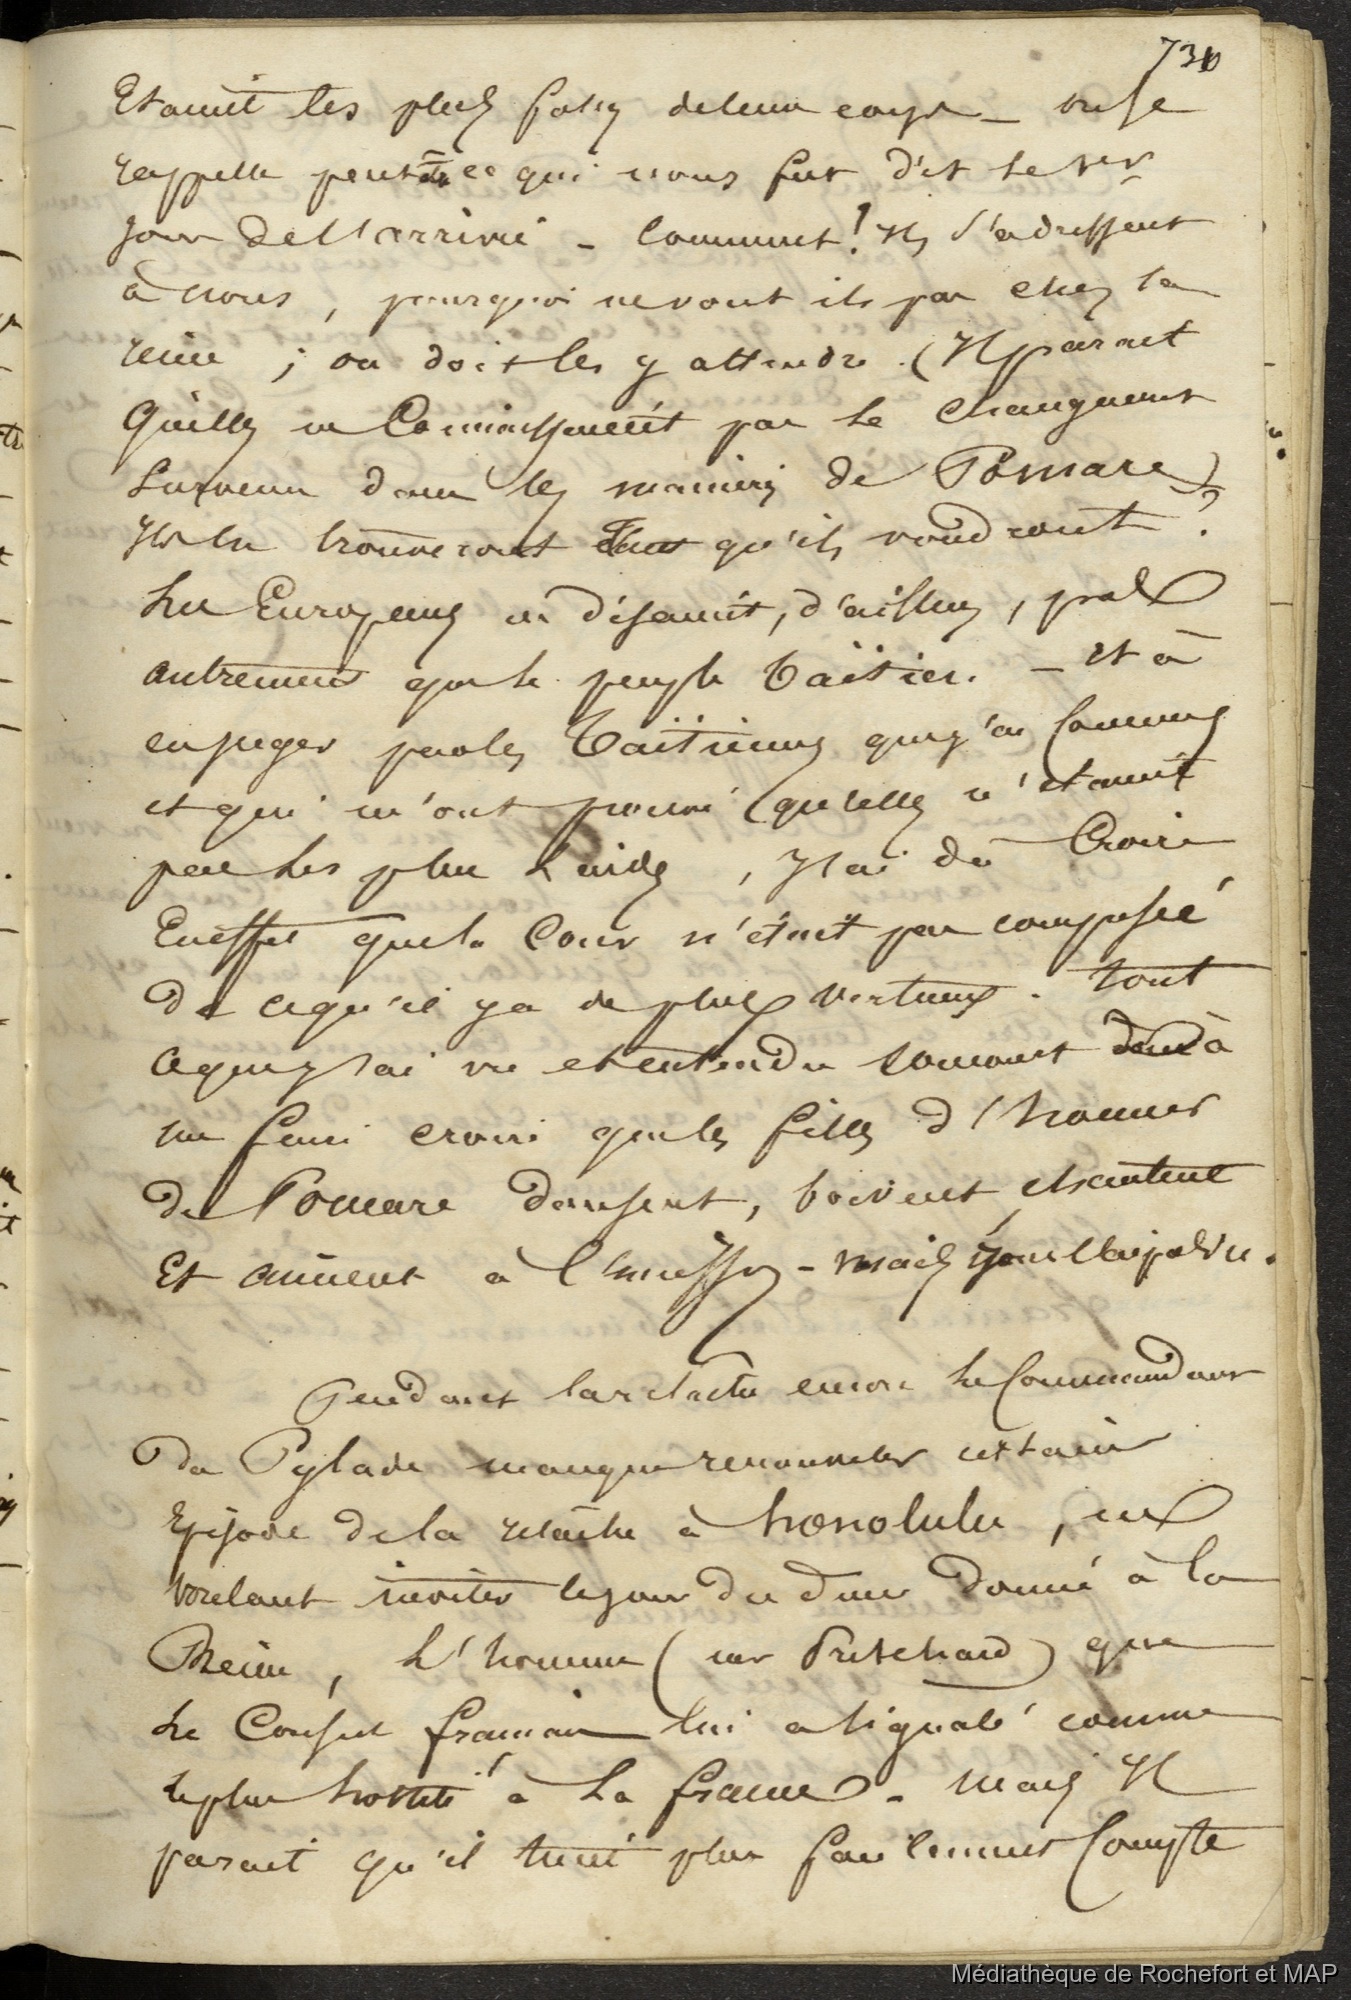 730
Etaient les plus folles de leur corps – on se
rappelle peut être ce qui nous fut dit le 1er
jour de l'arrivée – Comment! Ils s'adressent
à nous, pourquoi ne vont ils pas chez la
reine; on doit les y attendre. (Il parait
qu'elles ne connaissaient pas le changement
survenu dans les manières de Pomaré)
Ils en trouveront tant qu'ils voudront?
Les Européens ne disaient, d'ailleurs, pas
autrement que le peuple taïtien. – Et à
en juger par les Taïtiennes que j'ai connues
et qui m'ont prouvé qu'elles n'étaient
pas les plus laides, j'ai dû croire
En effet que la Cour n'était pas composée
de ce qu'il y a de plus vertueux. tout
ce que j'ai vu et entendu
me faire croire que les filles d'honneur
de Pomaré dansent, boivent, chantent
Et aiment à l'excès – mais je ne l'ai pas vu.
Pendant la relâche encore le Commandant
du Pylade manque renouveler certain
Episode de la relâche à honolulu, en
voulant inviter le jour du diner donné à la
Reine, L'homme (mr Pritchard) que
le Consul français lui a signalé comme
le plus hostile à la france. Mais il
parait qu'il tient plus seulement Compte
Médiathèque de Rochefort et MAP